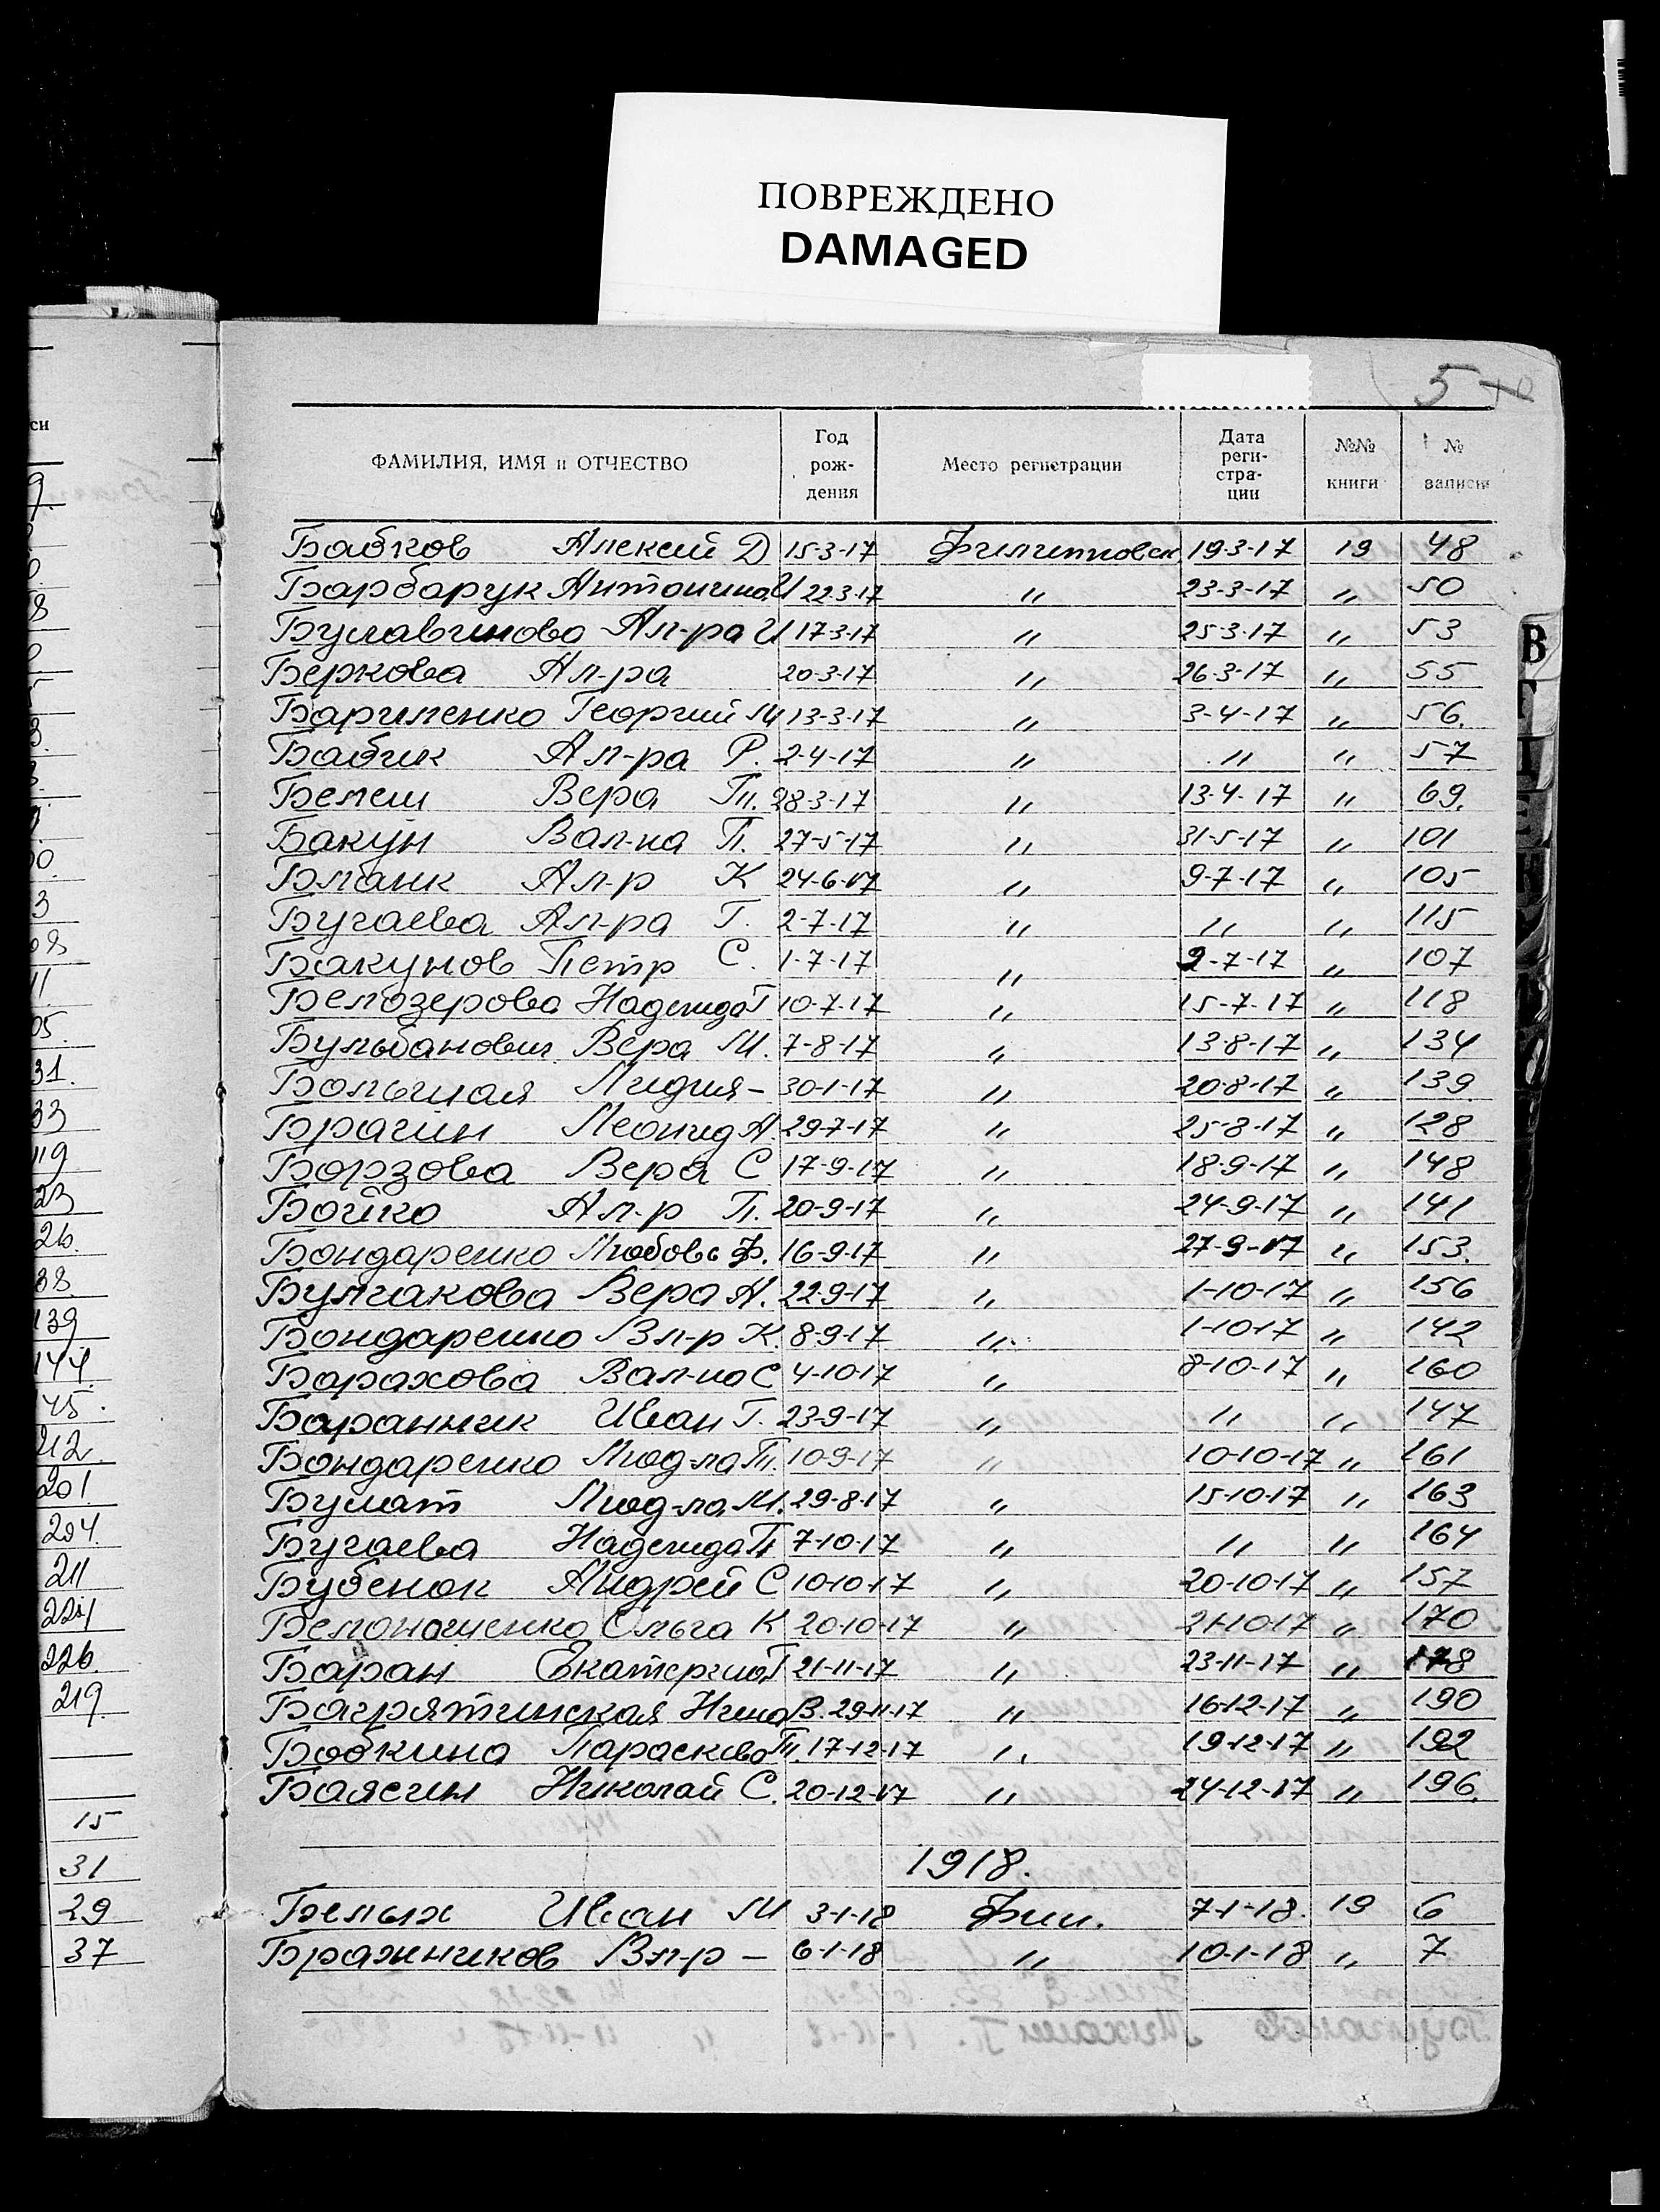 ПОВРЕЖДЕНО
DAMAGED
5
ФАМИЛИЯ, ИМЯ и ОТЧЕСТВО Год рождения Место регистрации Дата регистрации №№ книги № записи
Бабков Алексей Д 15-3-17 Филипповск 19-3-17 19 48
Барбарук Антонина И 22-3-17 " 23-3-17 " 50
Булавинова Ал-ра И 17-3-17 " 25-3-17 " 53
Беркова Ал-ра 20-3-17 " 26-3-17 " 55
Бариленко Георгий М 13-3-17 " 3-4-17 " 56.
Бабик Ал-ра Р. 2-4-17 " " " 57
Белеш Вера П. 28-3-17 " 13-4-17 " 69.
Бакун Вал-на П. 27-5-17 " 31-5-17 " 101
Бланк Ал-р К 24-6-17 " 9-7-17 " 105
Бугаева Ал-ра Г. 2-7-17 " " " 115
Бакунов Петр С. 1-7-17 " 2-7-17 " 107
Белозерова Надежда Г 10-7-17 " 15-7-17 " 118
Бульбанович Вера М. 7-8-17 " 13-8-17 " 134
Большая Лидия - 30-1-17 " 20-8-17 " 139
Брагин Леонид А. 29-7-17 " 25-8-17 " 128
Борзова Вера С 17-9-17 " 18-9-17 " 148
Бойко Ал-р П. 20-9-17 " 24-9-17 " 141
Бондаренко Любовь Ф. 16-9-17 " 27-9-17 " 153.
Булгакова Вера А. 22-9-17 " 1-10-17 " 156
Бондаренко Вл-р К. 8-9-17 " 1-10-17 " 142
Барахова Вал-на С 4-10-17 " 8-10-17 " 160
Баранник Иван Г. 23-9-17 " " " 147
Бондаренко Люд-ла П. 10-9-17 " 10-10-17 " 161
Булат Люд-ла М. 29-8-17 " 15-10-17 " 163
Бугаева Надежда П 7-10-17 " " " 164
Бубенок Андрей С 10-10-17 " 20-10-17 " 157
Белоношенко Ольга К 20-10-17 " 21-10-17 " 170
Баран Екатерина Г 21-11-17 " 23-11-17 " 178
Багрятинская Нина В. 29-11-17 " 16-12-17 " 190
Бобкина Параскева П. 17-12-17 " 19-12-17 " 192
Баясгин Николай С. 20-12-17 " 24-12-17 " 196.
1918.
Белых Иван М 3-1-18 Фил. 7-1-18. 19 6
Бражников Вл-р - 6-1-18 " 10-1-18 " 7
В
си
31.
33
119
23
26.
38.
139
144
45.
212
201
204.
211
224
226.
219.
15
31
29
37